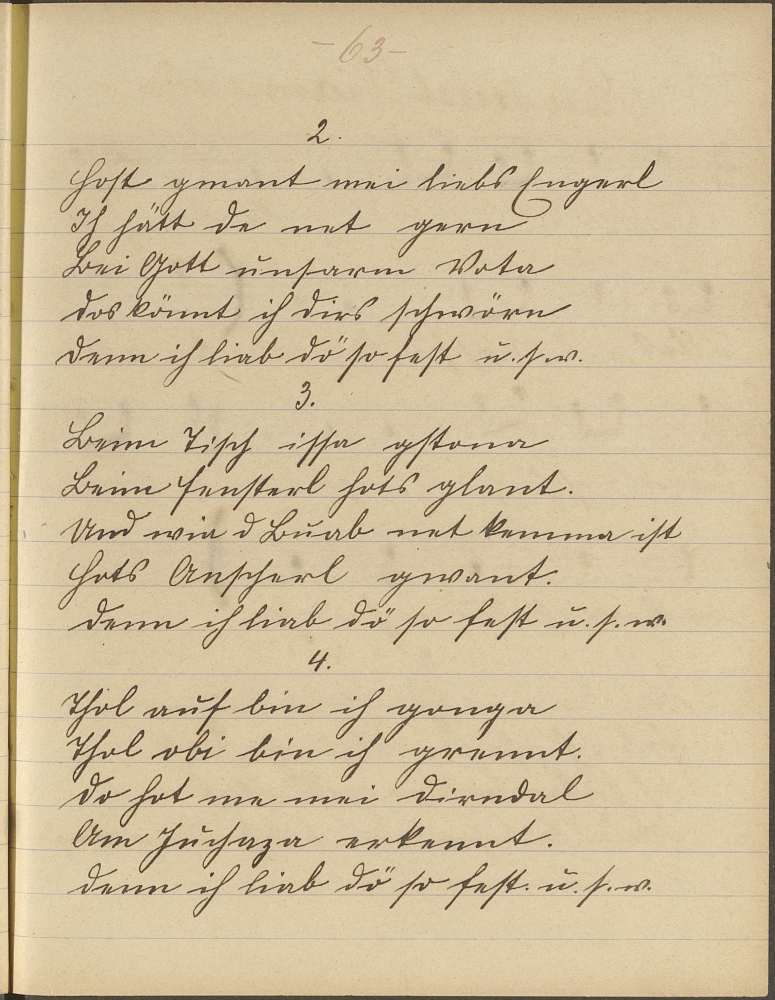 -63-
2.
Host gmant mei liebs Engerl
Ich hätt de net gern
Bei Gott unsarm Vota
Dos könnt ich dirs schwörn
Denn ich liab dö so fest u.s.w.
3.
Beim Tisch issa gstona
Beim Fensterl hots glant.
Und wia d Buab net kemma ist
Hots Anscherl gwant.
Denn ich liab dö so fest u.s.w.
4.
Thol auf bin ich gonga
Thol obi bin ich grennt.
Do hot me mei Dirndal
Am Juchaza erkennt.
Denn ich liab dö so fest. u.s.w.